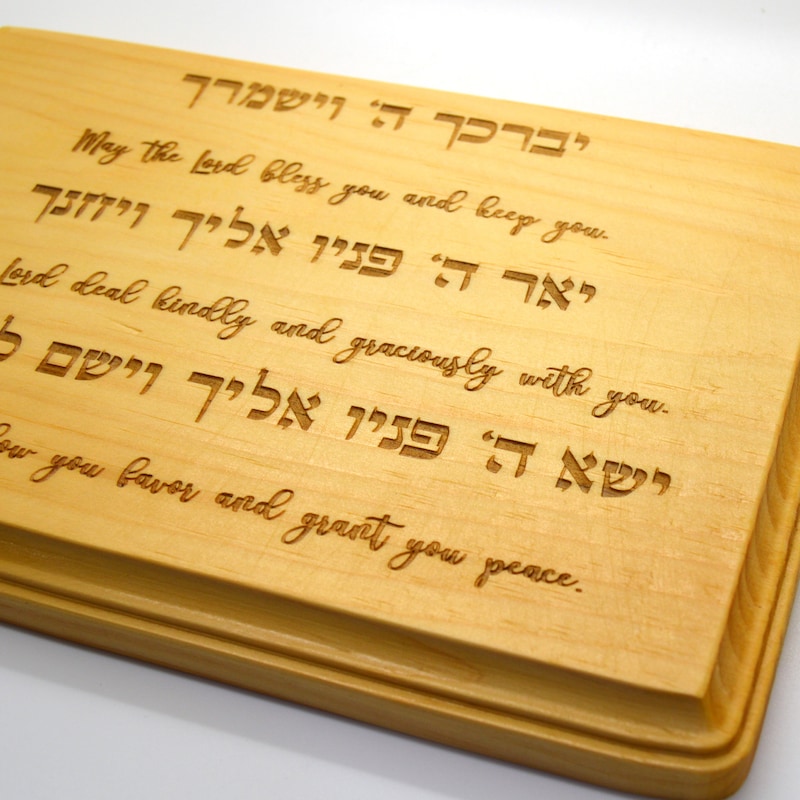 יברכך ה' וישמרך
May the Lord bless you and keep you.
יאר ה' פניו אליך ויחנך
Lord deal kindly and graciously with you.
ישא ה' פניו אליך וישם
you favor and grant you peace.